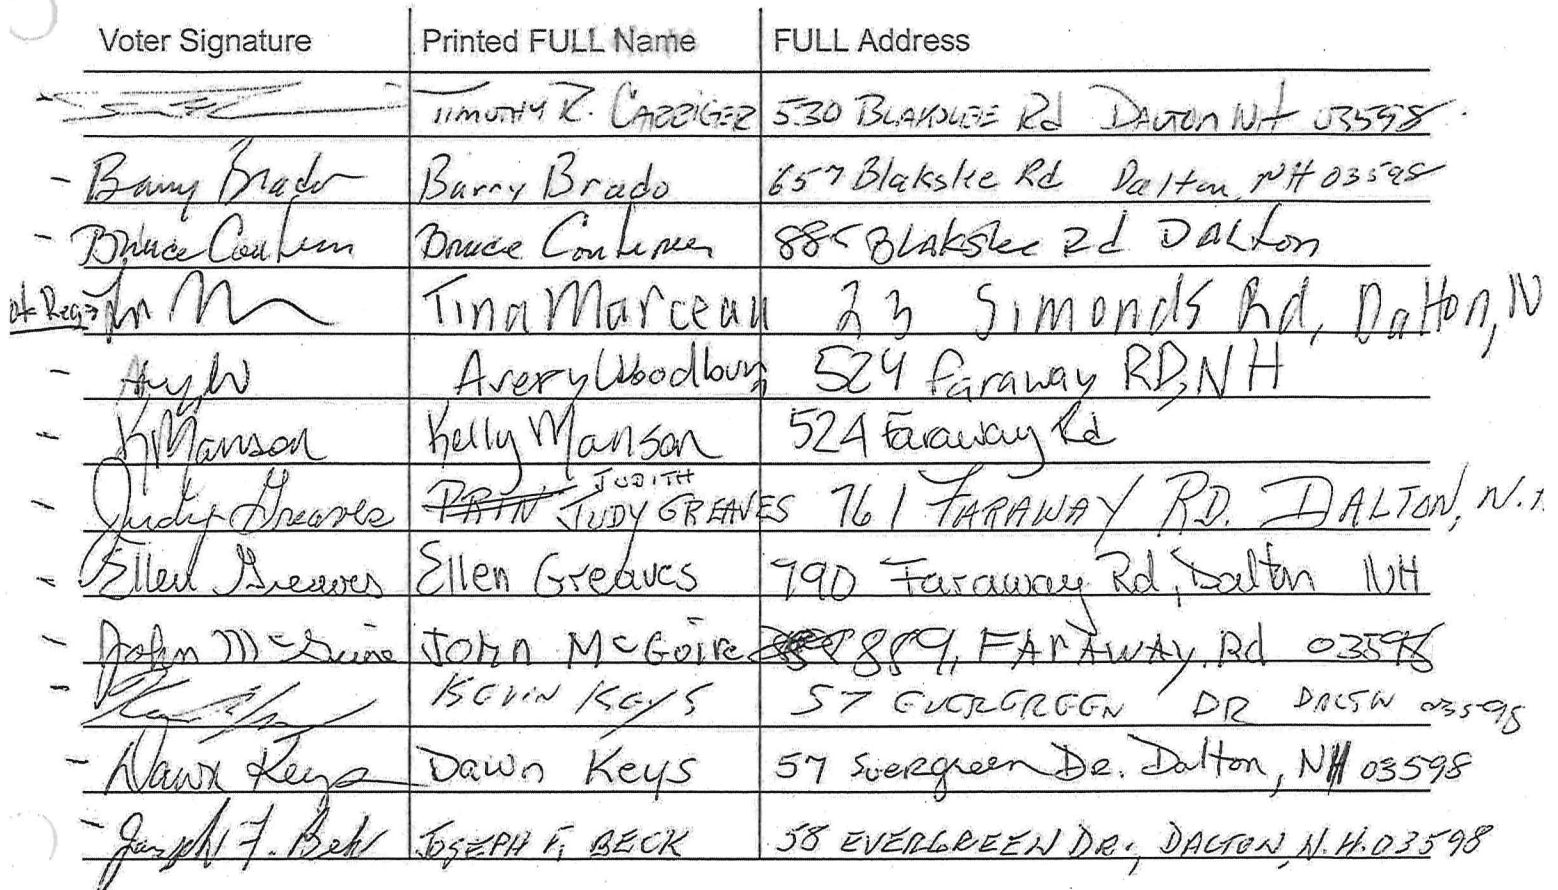 Voter Signature Printed FULL Name FULL Address
TIMOTHY R. 530 BLAKSLEE Rd DALTON NH 03598
Barry Brado Barry Brado 657 Blakslee Rd Dalton, NH 03598
Bruce Bruce 885 BLAKSLEE Rd DALTON
Tina Marceau 23 Simonds Rd, Dalton, N
Avery Woodbury 524 faraway RD, NH
K Manson Kelly Manson 524 Faraway Rd
JUDITH
Judy Greaves JUDY GREAVES 761 FARAWAY RD. DALTON, N.
Ellen Greaves Ellen Greaves 790 Faraway Rd, Dalton NH
John McGuire John McGoire 889, FARAWAY Rd 03598
KEVIN KEYS 57 EVERGREEN DR DALTON 03598
Dawn Keys Dawn Keys 57 Evergreen Dr. Dalton, NH 03598
Joseph F. Beck JOSEPH F. BECK 58 EVERGREEN DR., DALTON, N.H. 03598